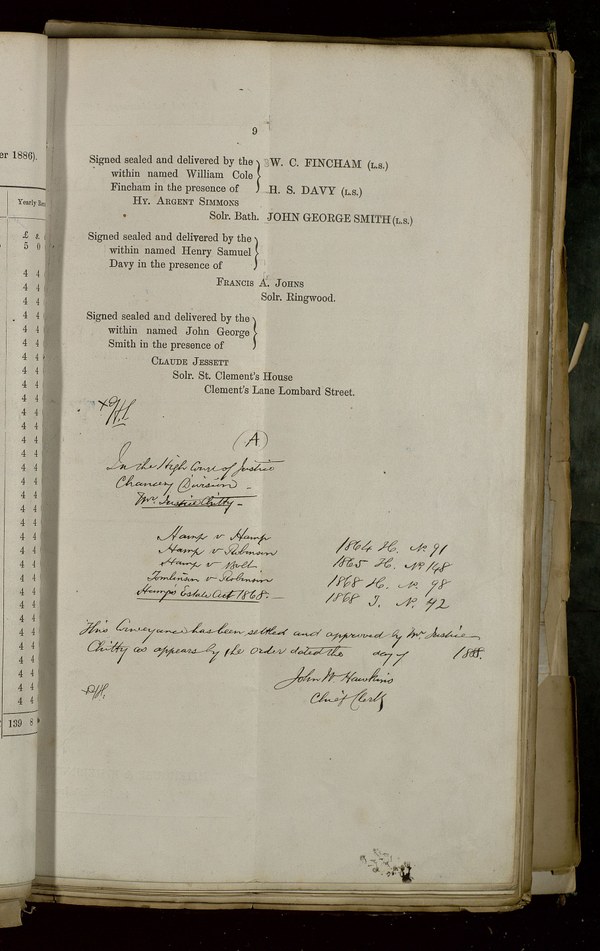 er 1886).
Yearly Ren
£ s.
5 0
4 4
4 4
4 4
4 4
4 4
4 4
4 4
4 4
4 4
4 4
4 4
4 4
4 4
4 4
4 4
4 4
4 4
4 4
4 4
4 4
4 4
4 4
4 4
4 4
4 4
4 4
4 4
4 4
4 4
4 4
4 4
4 4
139 8
9
Signed sealed and delivered by the
within named William Cole
Fincham in the presence of
W. C. FINCHAM (L.S.)
H. S. DAVY (L.S.)
HY. ARGENT SIMMONS
Solr. Bath. JOHN GEORGE SMITH (L.S.)
Signed sealed and delivered by the
within named Henry Samuel
Davy in the presence of
FRANCIS A. JOHNS
Solr. Ringwood.
Signed sealed and delivered by the
within named John George
Smith in the presence of
CLAUDE JESSETT
Solr. St. Clement's House
Clement's Lane Lombard Street.
(A)
In the High Court of Justice
Chancery Division
Mr. Justice Chitty
Hamp v Hamp 1864 H. No. 91
Hamp v Robinson 1865 H. No. 148
Hamp v 1868 H. No. 98
Tomlinson v Robinson 1868 T. No. 42
Hamps Estate Act 1868.
This Conveyance has been settled and approved by Mr. Justice
Chitty as appears by the Order dated the day of 188 .
John W. Hawkins
Chief Clerk